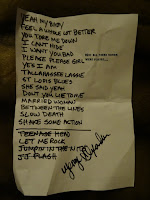 YEAH MY BABY
FEEL A WHOLE LOT BETTER
YOU TORE ME DOWN
I CAN'T HIDE
I WANT YOU BAD
PLEASE PLEASE GIRL
YES I AM
TALLAHASSEE LASSIE
ST LOUIS BLUES
SHE SAID YEAH
DON'T YOU LIE TO ME
MARRIED WOMAN
BETWEEN THE LINES
SLOW DEATH
SHAKE SOME ACTION
TEENAGE HEAD
LET ME ROCK
JUMPIN IN THE NITE
JJ FLASH